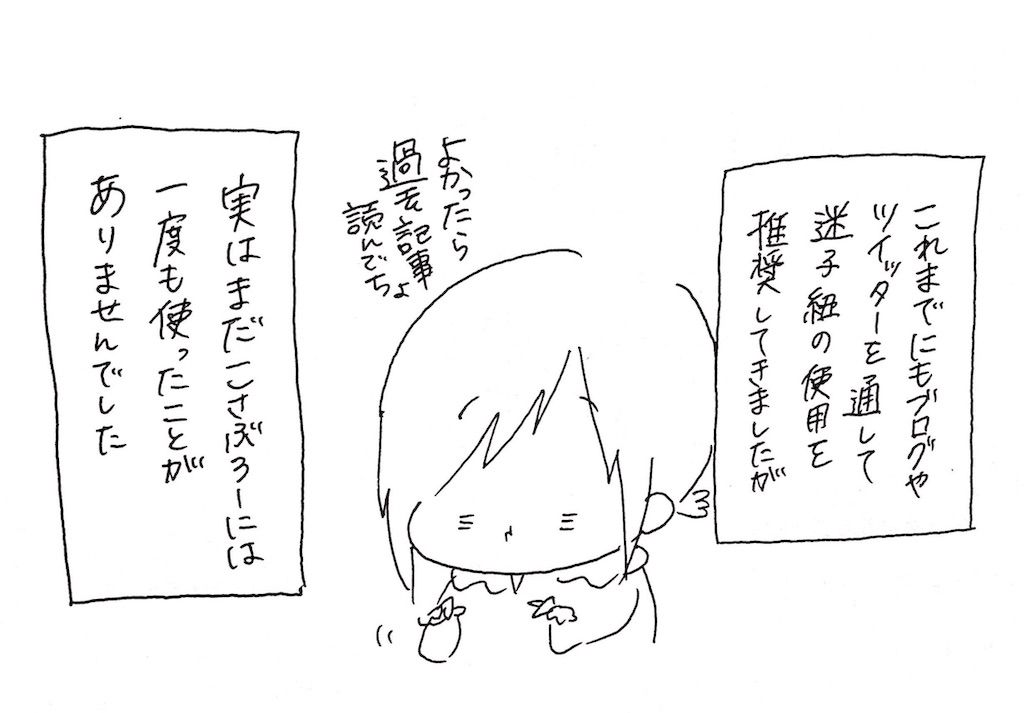 これまでにもブログや
ツイッターを通して
迷子紐の使用を
推奨してきましたが
よかったら
過去記事
読んでちょ
実はまだこさぶろーには
一度も使ったことが
ありませんでした